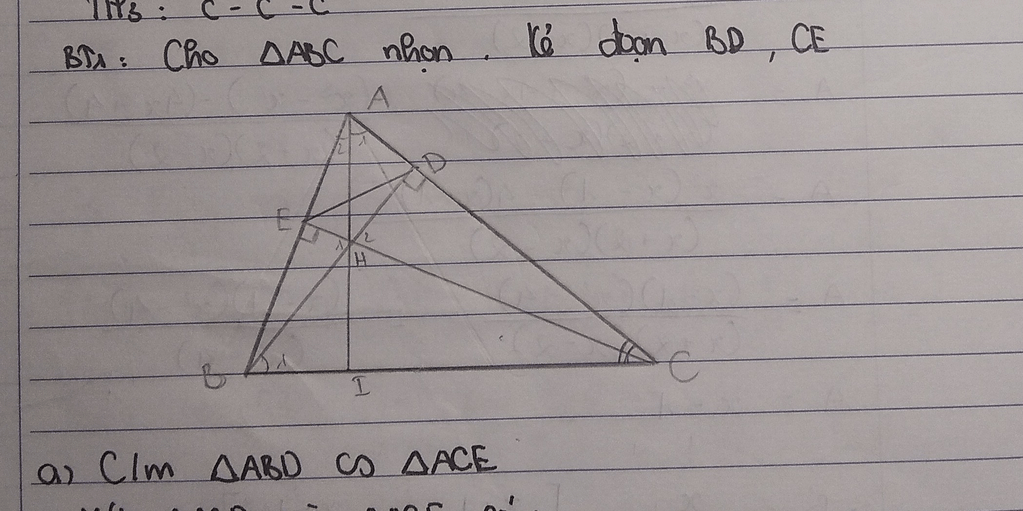 TH3: C - C - C
BT1: Cho ΔABC nhọn. Kẻ đoạn BD, CE
A
2 1
D
E
1 2
H
B 1 C
I
a) C/m ΔABD ∽ ΔACE